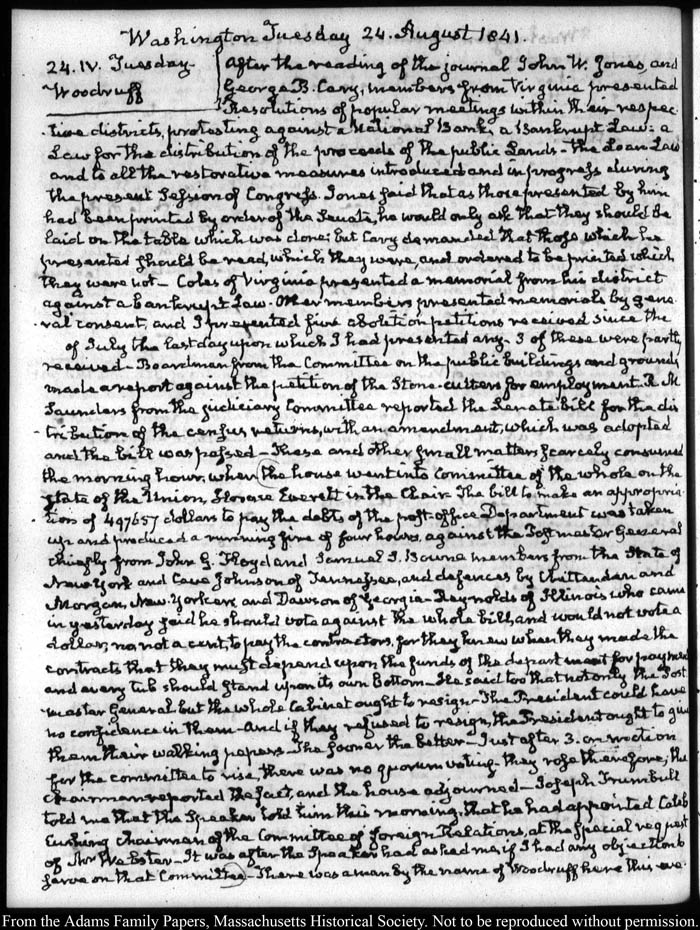 Washington Tuesday 24. August 1841.
24. IV. Tuesday-
Woodruff
After the reading of the journal John W. Jones, and
George B. Cary, members from Virginia presented
Resolutions of popular meetings within their respec-
tive districts, protesting against a National Bank, a Bankrupt Law: a
Law for the distribution of the proceeds of the public Lands- the Loan Law
and to all the restorative measures introduced and in progress during
the present Session of Congress. Jones said that as those presented by him
had been printed by order of the Senate, he would only ask that they should be
laid on the table which was done; but Cary demanded that those which he
presented should be read, which they were, and ordered to be printed which
they were not- Coles of Virginia presented a memorial from his district
against a bankrupt Law. Other members presented memorials by gene-
ral consent, and I presented five abolition petitions received since the
of July the last day upon which I had presented any- 3 of these were partly
received- Boardman from the Committee on the public buildings and grounds
made a report against the petition of the Stone-cutters for employment. R. M
Saunders from the Judiciary Committee reported the Senate bill for the dis
tribution of the census returns, with an amendment, which was adopted
and the bill was passed- These and other small matters scarcely consumed
the morning hour, when the house went into Committee of the whole on the
state of the Union, Horace Everett in the Chair. The bill to make an appropria-
tion of 497657 dollars to pay the debts of the post-office Department was taken
up and produced a running fire of four hours, against the Postmaster General
chiefly from John G. Floyd and Samuel S. Bowne members from the State of
New York and Cave Johnson of Tennessee, and defences by Chittenden and
Morgan, New-Yorkers and Dawson of Georgia- Reynolds of Illinois who came
in yesterday said he should vote against the whole bill, and would not vote a
dollar, no, not a cent, to pay the contractors, for they knew when they made the
contracts that they must depend upon the funds of the department for payment
and every tub should stand upon its own bottom- He said too that not only the Post
master General but the whole Cabinet ought to resign- The President could have
no confidence in them- And if they refused to resign, the President ought to give
them their walking papers- The sooner the better- Just after 3. on motion
for the committee to rise, there was no quorum voting- they rose therefore; the
chairman reported the fact, and the house adjourned- Joseph Trumbull
told me that the Speaker told him this morning, that he had appointed Caleb
Cushing Chairman of the Committee of foreign Relations, at the special request
of Mr Webster- It was after the Speaker had asked me if I had any objection to
serve on that Committee- There was a man by the name of Woodruff here this eve-
From the Adams Family Papers, Massachusetts Historical Society. Not to be reproduced without permission.